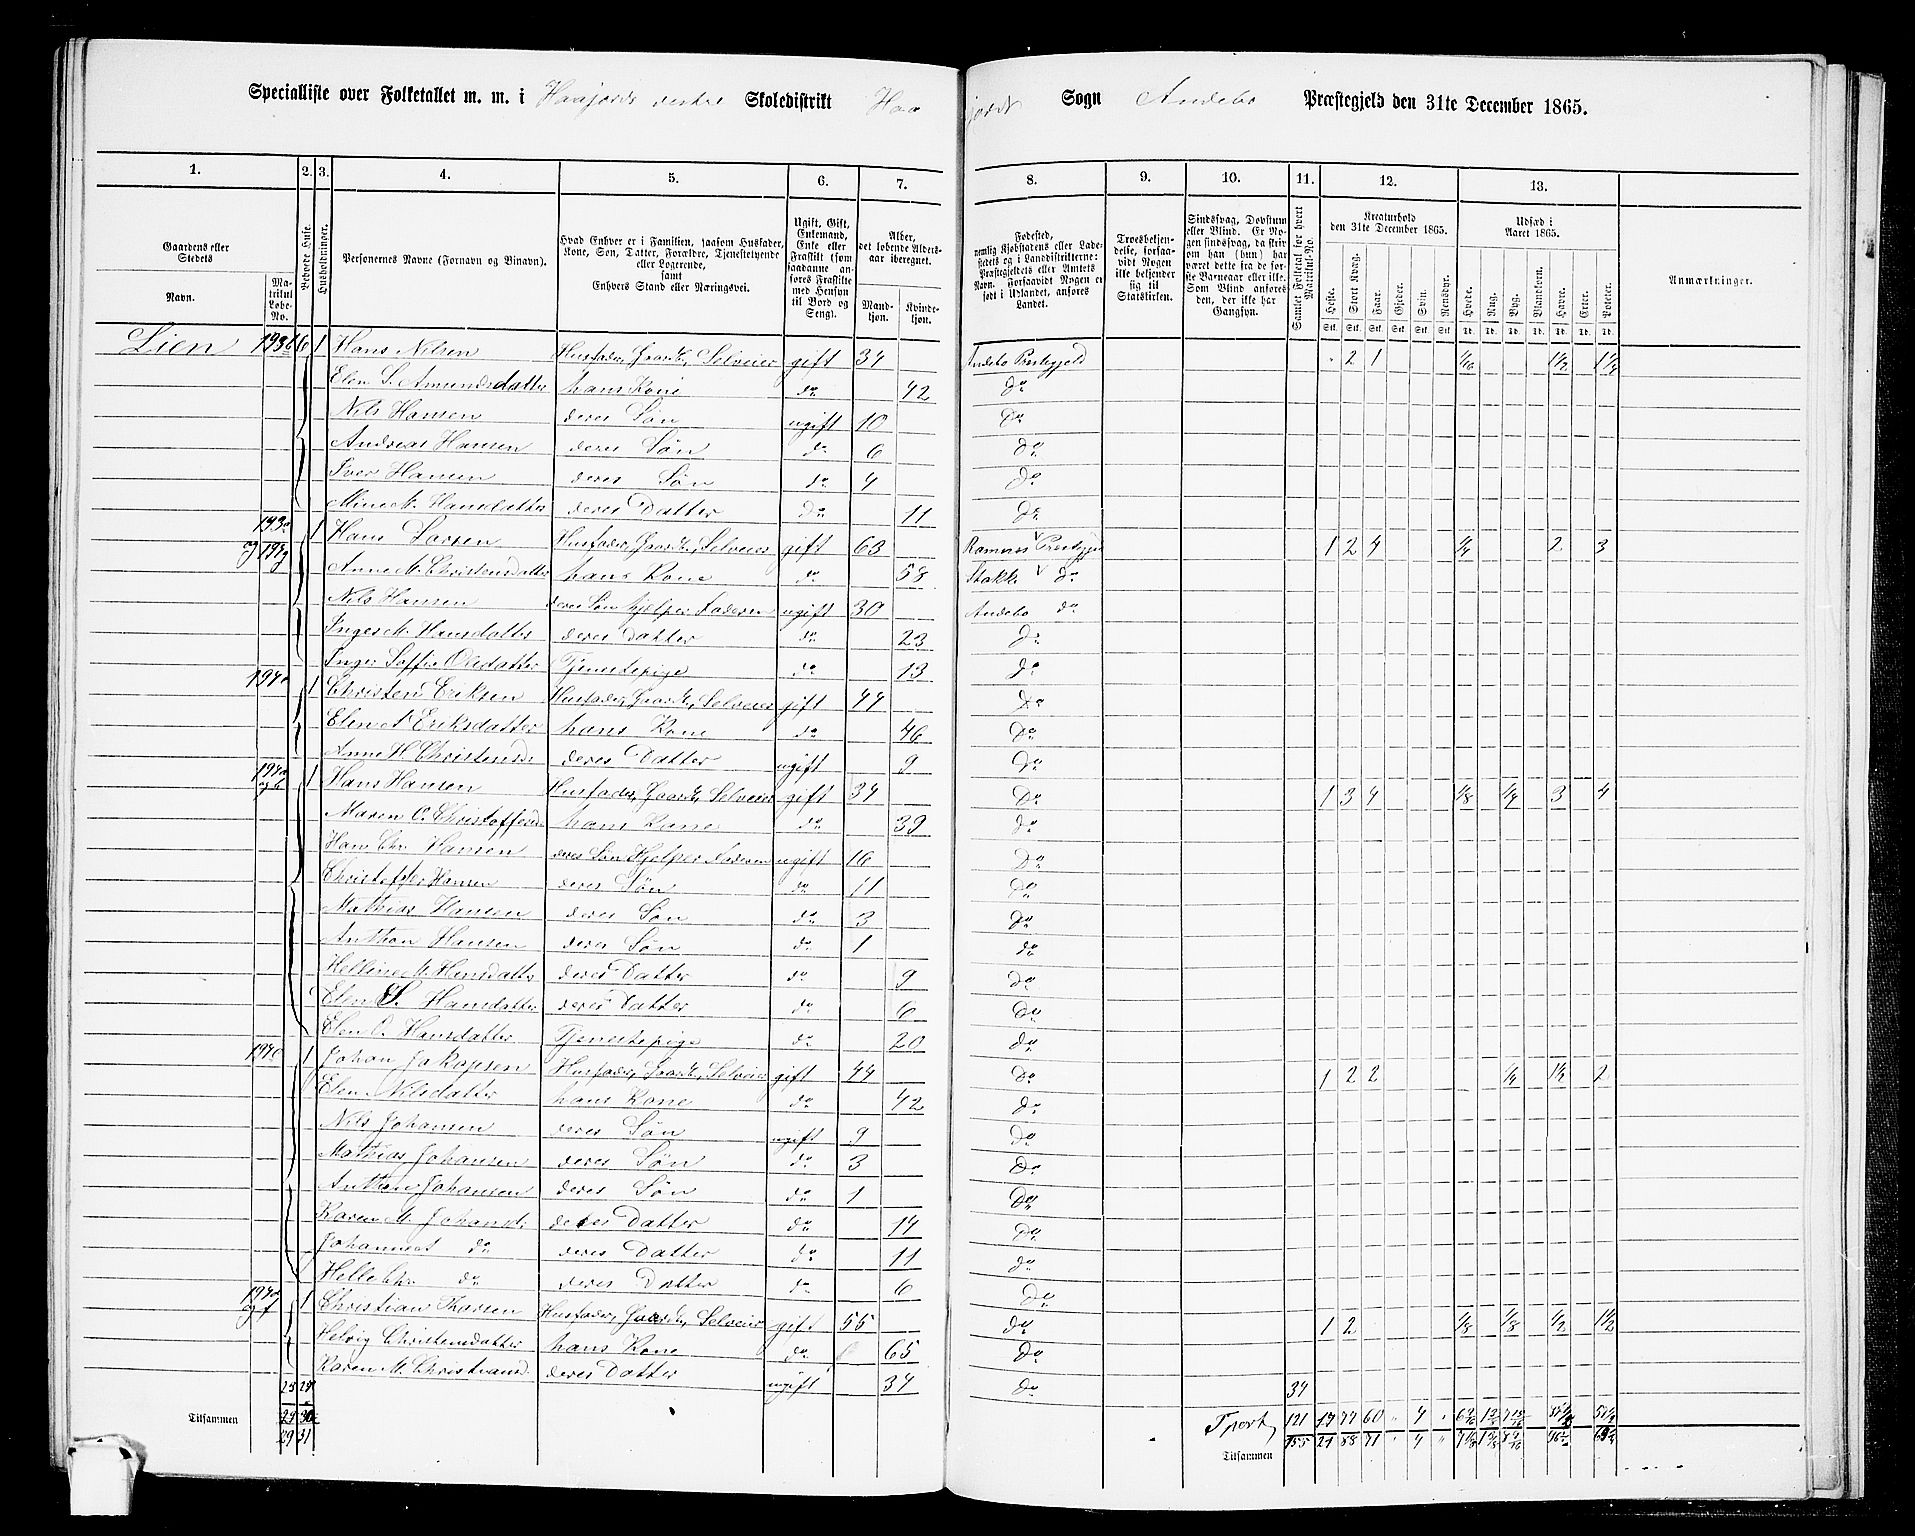 Specialliste over Folketallet m. m. i Haajords vestre Skoledistrikt Haajords Sogn Andebo Præstegjeld den 31te December 1865.
1. 2. 3. 4. 5. 6. 7. 8. 9. 10. 11. 12. 13.
Gaardens eller Stedets
Navn.
Matrikul Løbe-No.
Beboede Huse.
Husholdninger.
Personernes Navne (Fornavn og Binavn).
Hvad Enhver er i Familien, saasom Husfader, Kone, Søn, Datter, Forældre, Tjenestetyende eller Logerende, samt Enhvers Stand eller Næringsvei.
Ugift, Gift, Enkemand, Enke eller Fraskilt (som saadanne anføres Fraskilte med Hensyn til Bord og Seng).
Alder, det løbende Aldersaar iberegnet.
Mandkjøn. Kvindekjøn.
Fødested, nemlig Kjøbstadens eller Ladestedets og i Landdistrikterne: Præstegjeldets eller Amtets Navn. Forsaavidt Nogen er født i Udlandet, anføres Landet.
Troesbekjendelse, forsaavidt Nogen ikke bekjender sig til Statskirken.
Sindssvag, Døvstum eller Blind. Er Nogen sindssvag, da skriv om han (hun) har været dette fra de første Barneaar eller ikke. Som Blind anføres den, der ikke har Gangsyn.
Samlet Folketal for hvert Matrikul-No.
Kreaturhold den 31te December 1865.
Heste. Stort Kvæg. Faar. Gjeder. Svin. Rensdyr.
Udsæd i Aaret 1865.
Hvede. Rug. Byg. Blandkorn. Havre. Erter. Poteter.
Anmærkninger.
Lien 193b 6 1 Hans Nilsen Husfader, Gaardb., Selveier gift 34 Andebo Prestegjeld 2 1 1/16 1 1/2 1 1/4
Elen S. Amundsdatter hans Kone do 42 do
Nils Hansen deres Søn ugift 10 do
Andreas Hansen deres Søn do 6 do
Iver Hansen deres Søn do 4 do
Mine M. Hansdatter deres Datter do 11 do
193a og 194g 1 Hans Larsen Husfader, Gaardb., Selveier gift 63 Ramnes Prestegjeld 1 2 4 1/4 2 3
Anne M. Christensdatter hans Kone do 58 Stokke do
Nils Hansen deres Søn hjelper Faderen ugift 30 Andebo do
Inger M. Hansdatter deres Datter do 23 do
Inger Soffie Olsdatter Tjenestepige do 13 do
194a 1 Christen Eriksen Husfader, Gaardb., Selveier gift 44 do
Elen A Eriksdatter hans Kone do 46 do
Anne H. Christensd. deres Datter ugift 9 do
1 Hans Hansen Husfader, Gaardb., Selveier gift 34 do 1 3 4 1/8 1/4 3 4
Maren O. Christoffersd. hans Kone do 39 do
Hans Chr. Hansen deres Søn Hjelper Faderen ugift 16 do
Christoffer Hansen deres Søn do 11 do
Mathias Hansen deres Søn do 3 do
Anthon Hansen deres Søn do 1 do
Helline M. Hansdatter deres Datter do 9 do
Elen S. Hansdatter deres Datter do 6 do
Elen O. Hansdatter Tjenestepige do 20 do
194c 1 Johan Jakopsen Husfader, Gaardb., Selveier gift 44 do 1 2 2 1/4 1 1/2 2
Elen Nilsdatter hans Kone do 42 do
Nils Johansen deres Søn ugift 9 do
Mathias Johansen deres Søn do 3 do
Anthon Johansen deres Søn do 1 do
Karen M. Johansd. deres Datter do 14 do
Johanne do deres Datter do 11 do
Helle Chr. do deres Datter do 6 do
1 Christian Thorsen Husfader, Gaardb., Selveier gift 55 do 1 2 1/8 1/8 1/2 1 1/2
Helvig Christensdatter hans Kone do 65 do
Karen M. Christiansd. deres Datter ugift 34 do 34
Tilsammen 29 30
29 31
Tport 121 17 77 60 4
Tilsammen 155 21 88 71 4